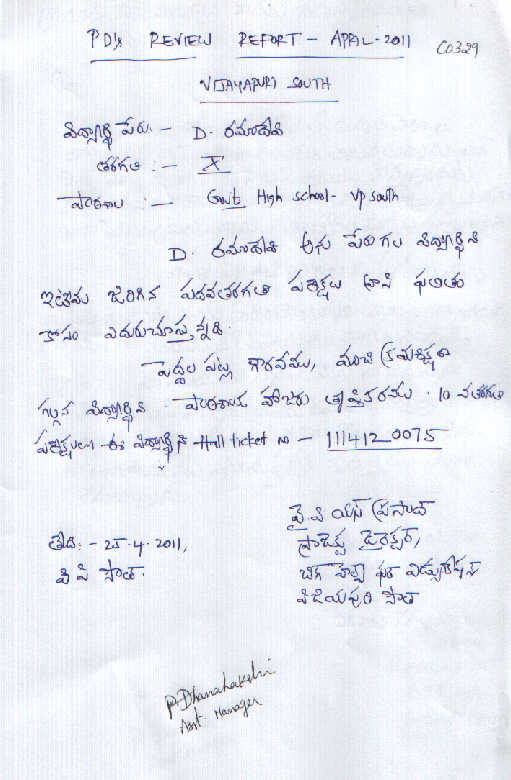 PD's REVIEW REPORT - APRIL-2011
C0329
VIJAYAPURI SOUTH
విద్యార్థి పేరు. - D. రమాదేవి
తరగతి : - X
పాఠశాల : - Govt High school - Vp south
D. రమాదేవి అను పేరు గల విద్యార్థిని
ఇటీవల జరిగిన పదవతరగతి పరీక్షలు వ్రాసి ఫలితం
కోసం ఎదురుచూస్తున్నది.
పెద్దల పట్ల గౌరవము, మంచి క్రమశిక్షణ
గల్గిన విద్యార్థిని. పాఠశాలకు హాజరు తృప్తికరము. 10 వతరగతి
పరీక్షలు ఈ విద్యార్థిని Hall ticket no - 1114120075
వై. వి యస్ ప్రసాద్
తేది: - 25-4-2011, ప్రాజెక్టు డైరెక్టర్,
వి పి సౌత్. బిగ్ హెల్ప్ ఫర్ ఎడ్యుకేషన్
విజయపురి సౌత్
P. Dhanalakshmi
Asst Manager